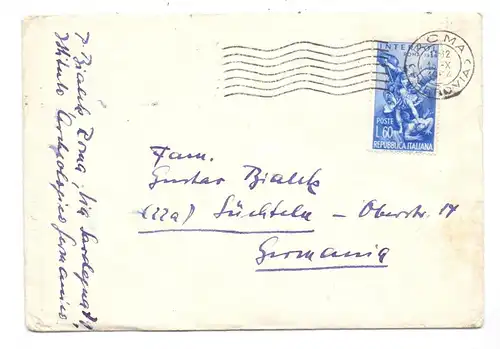 ROMA
INTERPOL
POSTE
L.60
REPUBBLICA ITALIANA
Fam.
Gustav Bialek
(22a) Süchteln - Oberstr. 17
Germania
Bialek Roma, Via Sardegna 79
Istituto Archeologico Germanico